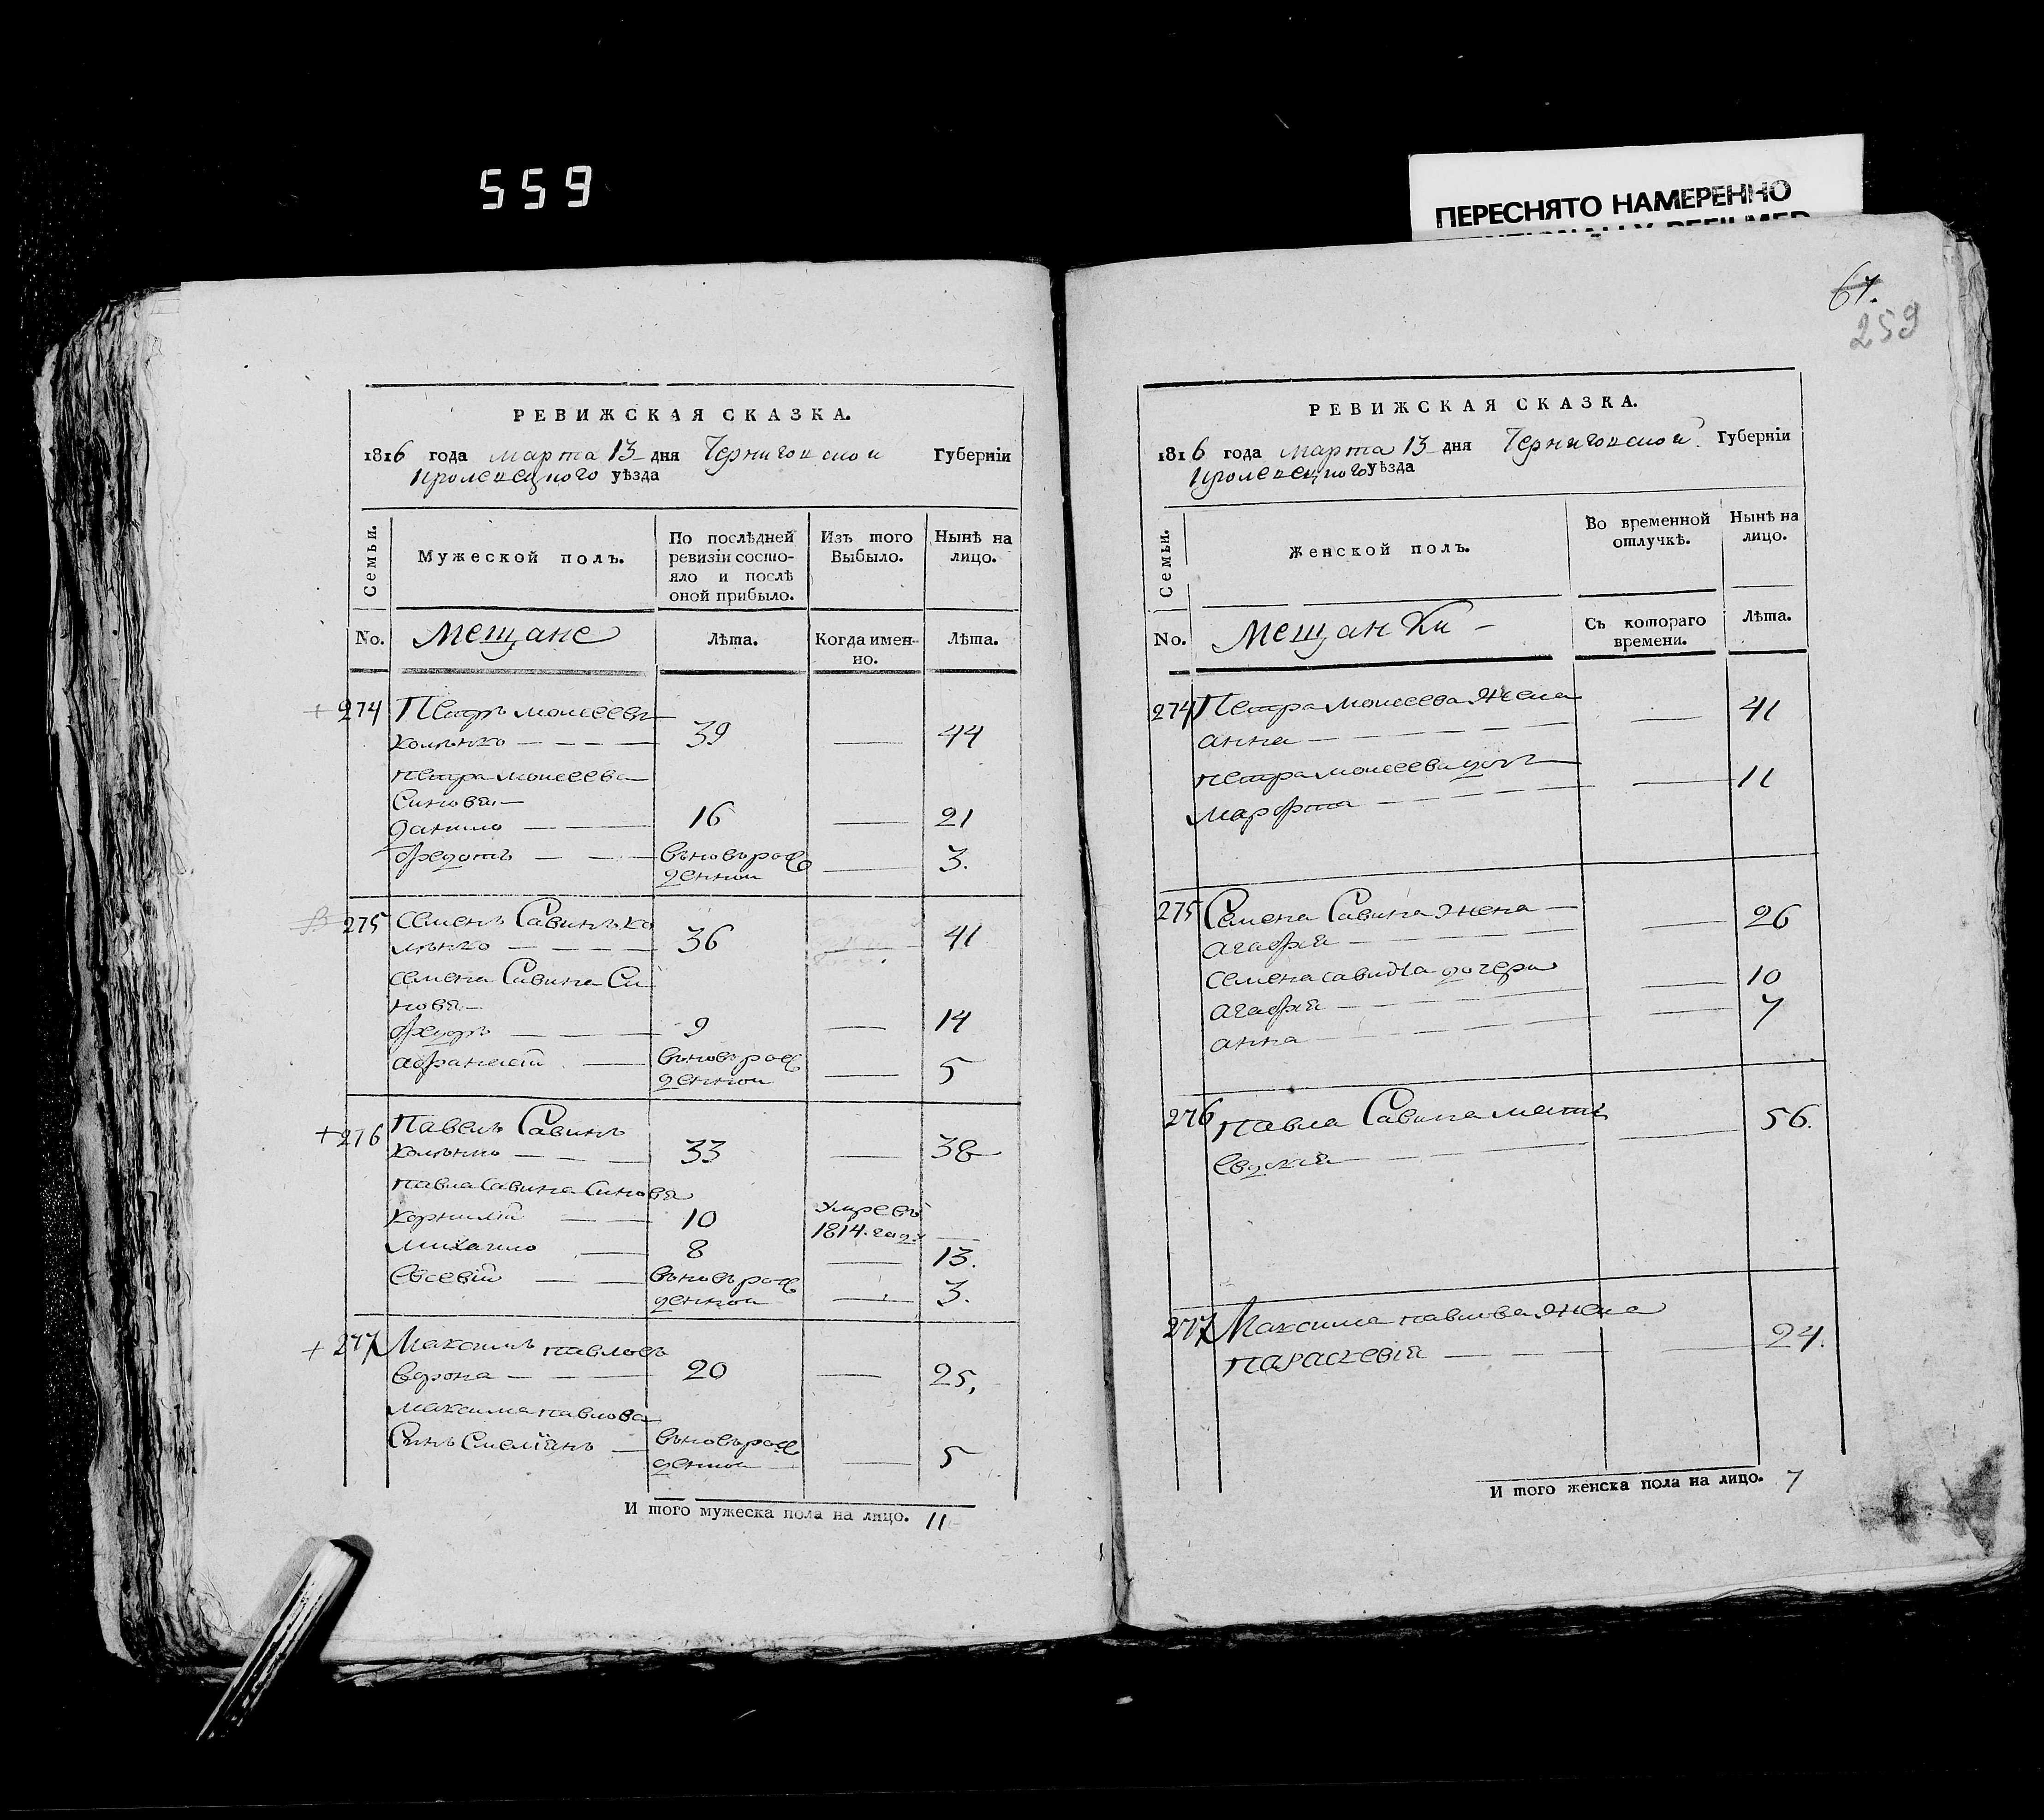 559
ПЕРЕСНЯТО НАМЕРЕННО
67.
259
РЕВИЖСКАЯ СКАЗКА.
1816 года марта 13 дня Черниговской Губерніи
кролевецкого уѣзда
Семьи.
Мужеской полъ.
По послѣдней
ревизіи состо-
яло и послѣ
оной прибыло.
Изъ того
Выбыло.
Нынѣ на
лицо.
No.
Мещане
Лѣта.
Когда имен-
но.
Лѣта.
274 Петръ моисеевъ
39 44
Петра моисеева
Синовя
данило 16 21
федотъ вновърож 3.
денной
275 Семенъ Савинъ ко
36 41
Семена Савина Си
новя
федоръ 9 14
афанасий вновърож
денной 5
276 Павелъ Савинъ
33 38
павла Савина Синовя
корнилій 10 Умревъ
1814. году
михаило 8 13.
Евсевій вновърож
денной 3.
277 Максимъ павловъ
ворона 20 25,
максима павлова
Синъ Емеліянъ вновърож
денной 5
И того мужеска пола на лицо. 11
РЕВИЖСКАЯ СКАЗКА.
1816 года марта 13 дня Черниговской Губерніи
кролевецкого уѣзда
Семьи.
Женской полъ.
Во временной
отлучкѣ.
Нынѣ на
лицо.
No.
Мещанки
Съ котораго
времени.
Лѣта.
274 Петра моисеева жена
анна 41
петра моисеева дочь
марфа 11
275 Семена Савина жена
агафя 26
семена савина дочери
агафя 10
анна 7
276 Павла Савина мать
Евдокия 56.
277 Максима павлова жена
параскевія 24.
И того женска пола на лицо. 7